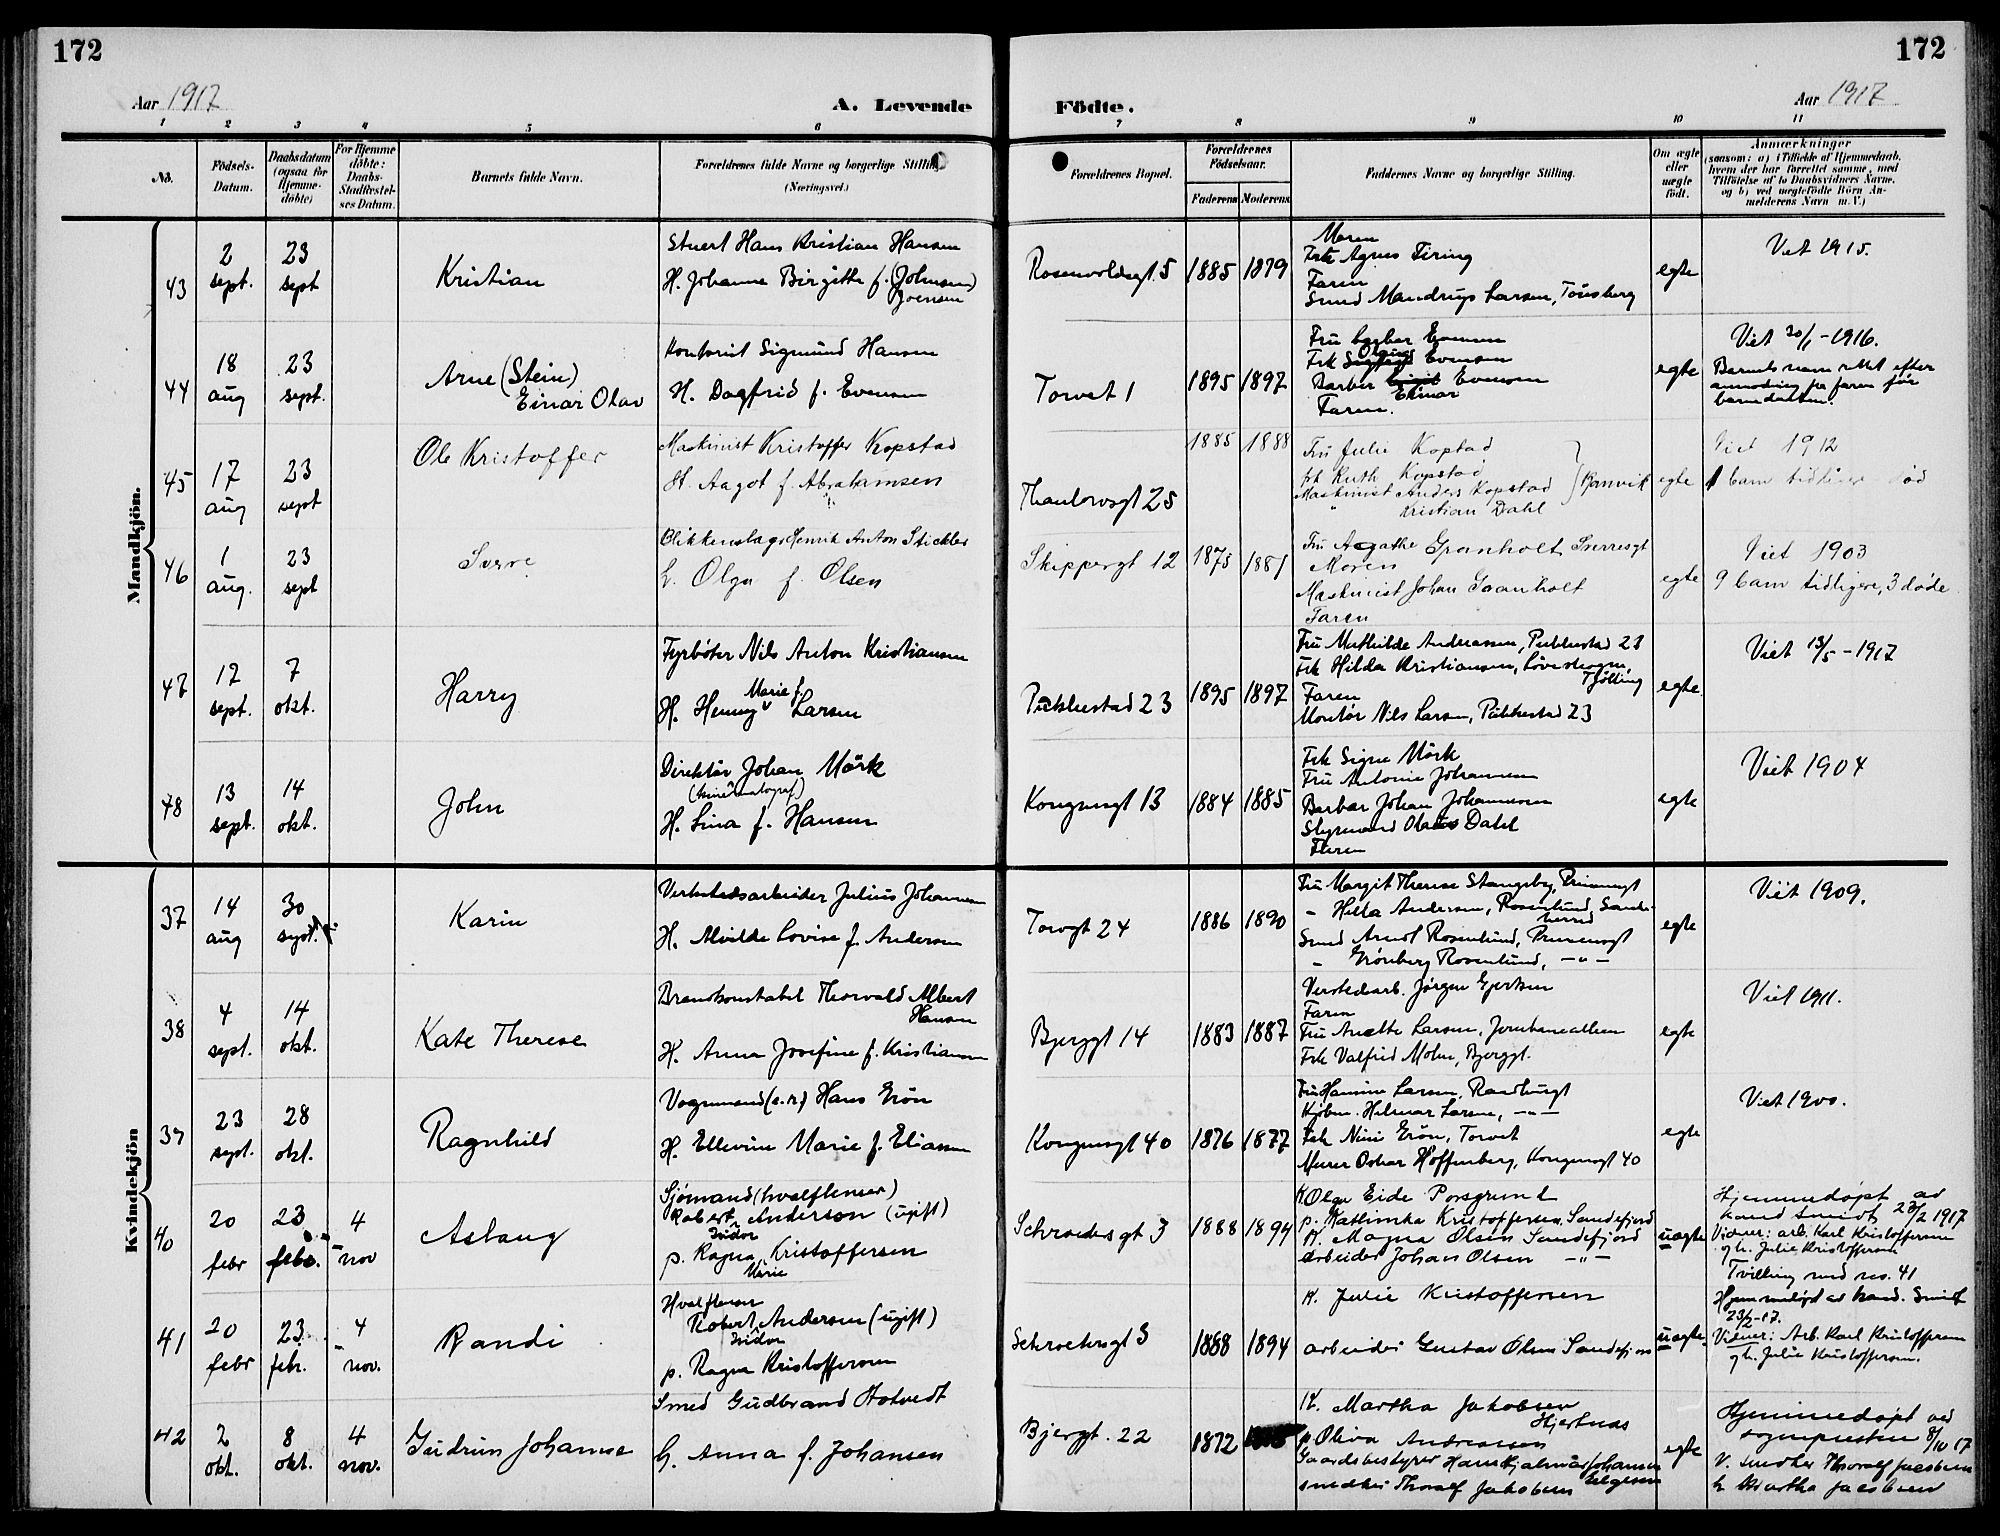 172
172
Aar 1917
A. Levende
Födte.
Aar 1917
1 2 3 4 5 6 7 8 9 10 11
No.
Födsels-Datum.
Daabsdatum (ogsaa for Hjemme-döbte)
For Hjemme döbte: Daabs-Stadfæstel-ses Datum.
Barnets fulde Navn.
Forældrenes fulde Navne og borgerlige Stilling
(Næringsvei.)
Forældrenes Bopæl.
Forældrenes Födselsaar.
Faderens Moderens
Faddernes Navne og borgerlige Stilling.
Om ægte eller uægte födt.
Anmærkninger
(saasom: a) i Tilfælde af Hjemmedaab,
hvem der har forrettet samme, med
Tilföielse af to Daabsvidners Navne,
og b) ved uægtefödte Börn An-
melderens Navn m. V.)
Mandkjön.
43
2 sept.
23 sept
Kristian
Stuert Hans Kristian Hansen
H. Johanne Birgitte f. (Johnsen)
Joensen
Rosenvoldsgt. 5
1885 1879
Moren
Frk Agnes Firing
Faren
Smed Mandrup Larsen, Tönsberg
egte
Viet 1915.
44
18 aug
23 sept.
Arne (Stein)
Einar Olav
Kontorist Sigmund Hansen
H. Dagfrid f. Evensen
Torvet 1
1895 1897
Fru Evensen
Frk Evensen
Barber Einar Evensen
Faren.
egte
Viet 30/1 - 1916.
Barnets navn rettet efter
anmodning fra faren før
barnedaaben.
45
17 aug
23 sept
Ole Kristoffer
Maskinist Kristoffer Kopstad
H. Aagot f. Abrahamsen
Thaulowsgt 25
1885 1888
Fru Julie Kopstad
frk Ruth Kopstad
Maskinist Anders Kopstad
" Kristian Dahl
Ranvik
egte
Viet 1912
1 barn tidligere død
46
1 aug.
23 sept
Sverre
Blikkenslager Henrik Anton Stickler
h. Olga f. Olsen
Skippergt 12
1875 1881
Fru Agathe Granholt Snerresgt
Moren
Maskinist Johan Graanholt
Faren
egte
Viet 1903
9 barn tidligere, 3 døde
47
17 sept.
7 okt.
Harry
Fyrbøter Nils Anton Kristiansen
H. Henny Marie f. Larsen
Pukkestad 23
1895 1897
Fru Mathilde Andreassen, Pukkestad 23
Frk Hilda Kristiansen, Løveskogen, Tjølling
Faren
Montør Nils Larsen, Pukkestad 23
egte
Viet 13/5 - 1917
48
13 sept.
14 okt.
John
Direktør Johan Mörk
(kinematograf)
H. Lina f. Hansen
Kongensgt 13
1884 1885
Frk Signe Mörk
Fru Antonie Johannesen
Barber Johan Johannesen
Styrmand Olaus Dahl
Faren
egte
Viet 1904
Kvindekjön
37
14 aug
30 sept.
Karin
Verkstedsarbeider Julius Johannesen
H. Alvilde Lovise f. Andersen
Torvgt 24
1886 1890
Fru Margit Therese Stangeby, Prinsensgt
" Hilda Andersen, Rosenlund, Sandeherred
Smed Arnolf Rosenlund, Prinsensgt
" Grönberg Rosenlund, - " -
egte
Viet 1909.
38
4 sept.
14 okt.
Kate Therese
Brandkonstabel Thorvald Albert
Hansen
H. Anna Josefine f. Kristiansen
Bjerggt 14
1883 1887
Verkstedarb. Jørgen Gjertsen
Faren
Fru Anette Larsen, Jernbanealleen
Frk Valfrid Molin, Bjerggt.
egte
Viet 1911.
39
23 sept.
28 okt.
Ragnhild
Vognmand (e.r.) Hans Grön
H. Ellevine Marie f. Eliassen
Kongensgt 40
1876 1877
Fru Hanine Larsen, Raadhusgt
Kjøbm. Hilmar Larsen, - " -
Frk Nini Grön, Torvet
Murer Oskar Hoffenberg, Kongensgt 40
egte
Viet 1900.
40
20 febr
23 febr.
4 nov
Aslaug
Sjömand (hvalflenser)
Robert Isidor Anderson (ugift)
p. Ragna Marie Kristoffersen
Schroedersgt 3
1888 1894
K Olga Eide Porsgrund
p. Kathinka Kristoffersen Sandefjord
K. Magna Olsen Sandefjord
arbeider Johan Olsen - " -
uægte
Hjemmedøpt av
kand Smidt 23/2 1917
Vidner: arb. Karl Kristoffersen
og h. Julie Kristoffersen
Tvilling med no. 41
41
20 febr
23 febr.
4 nov.
Randi
Hvalflenser
Robert Isidor Andersen (ugift)
p. Ragna Kristoffersen
Schroetersgt 3
1888 1894
K. Julie Kristoffersen
arbeider Gustav Olsen Sandefjord
uægte
Hjemmedøpt av kand. Smidt
23/2-17.
Vidner: Arb. Karl Kristoffersen
og h. Julie Kristoffersen.
42
2 okt.
8 okt.
4 nov.
Gudrun Johanne
Smed Gudbrand Hotvedt
h. Anna f. Johansen
Bjerggt. 22
1872
K. Martha Jakobsen
Hjertnes
p. Oliva Andreassen
Gaardsbestyrer Hans Hjalmar Johansen
Helgesen
snedker Thoralf Jakobsen
egte
Hjemmedøpt ved
sognepresten 8/10 17
V. snedker Thoralf Jacobsen
h Martha Jacobsen